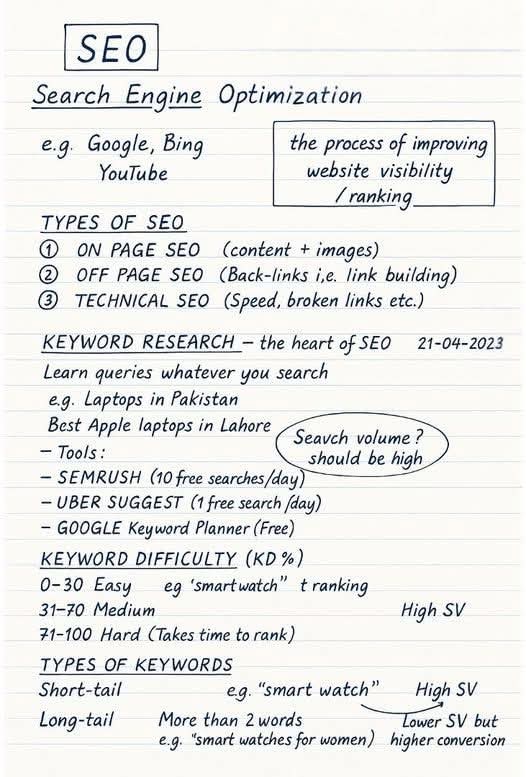 SEO
Search Engine Optimization
e.g. Google, Bing
YouTube
the process of improving
website visibility
/ ranking
TYPES OF SEO
① ON PAGE SEO (content + images)
② OFF PAGE SEO (Back-links i,e. link building)
③ TECHNICAL SEO (Speed, broken links etc.)
KEYWORD RESEARCH – the heart of SEO 21-04-2023
Learn queries whatever you search
e.g. Laptops in Pakistan
Best Apple laptops in Lahore
Seavch volume?
should be high
– Tools:
– SEMRUSH (10 free searches/day)
– UBER SUGGEST (1 free search/day)
– GOOGLE Keyword Planner (Free)
KEYWORD DIFFICULTY (KD %)
0–30 Easy eg ‘smartwatch” t ranking
31–70 Medium High SV
71–100 Hard (Takes time to rank)
TYPES OF KEYWORDS
Short-tail e.g. “smart watch” High SV
Long-tail More than 2 words Lower SV but
e.g. “smart watches for women) higher conversion